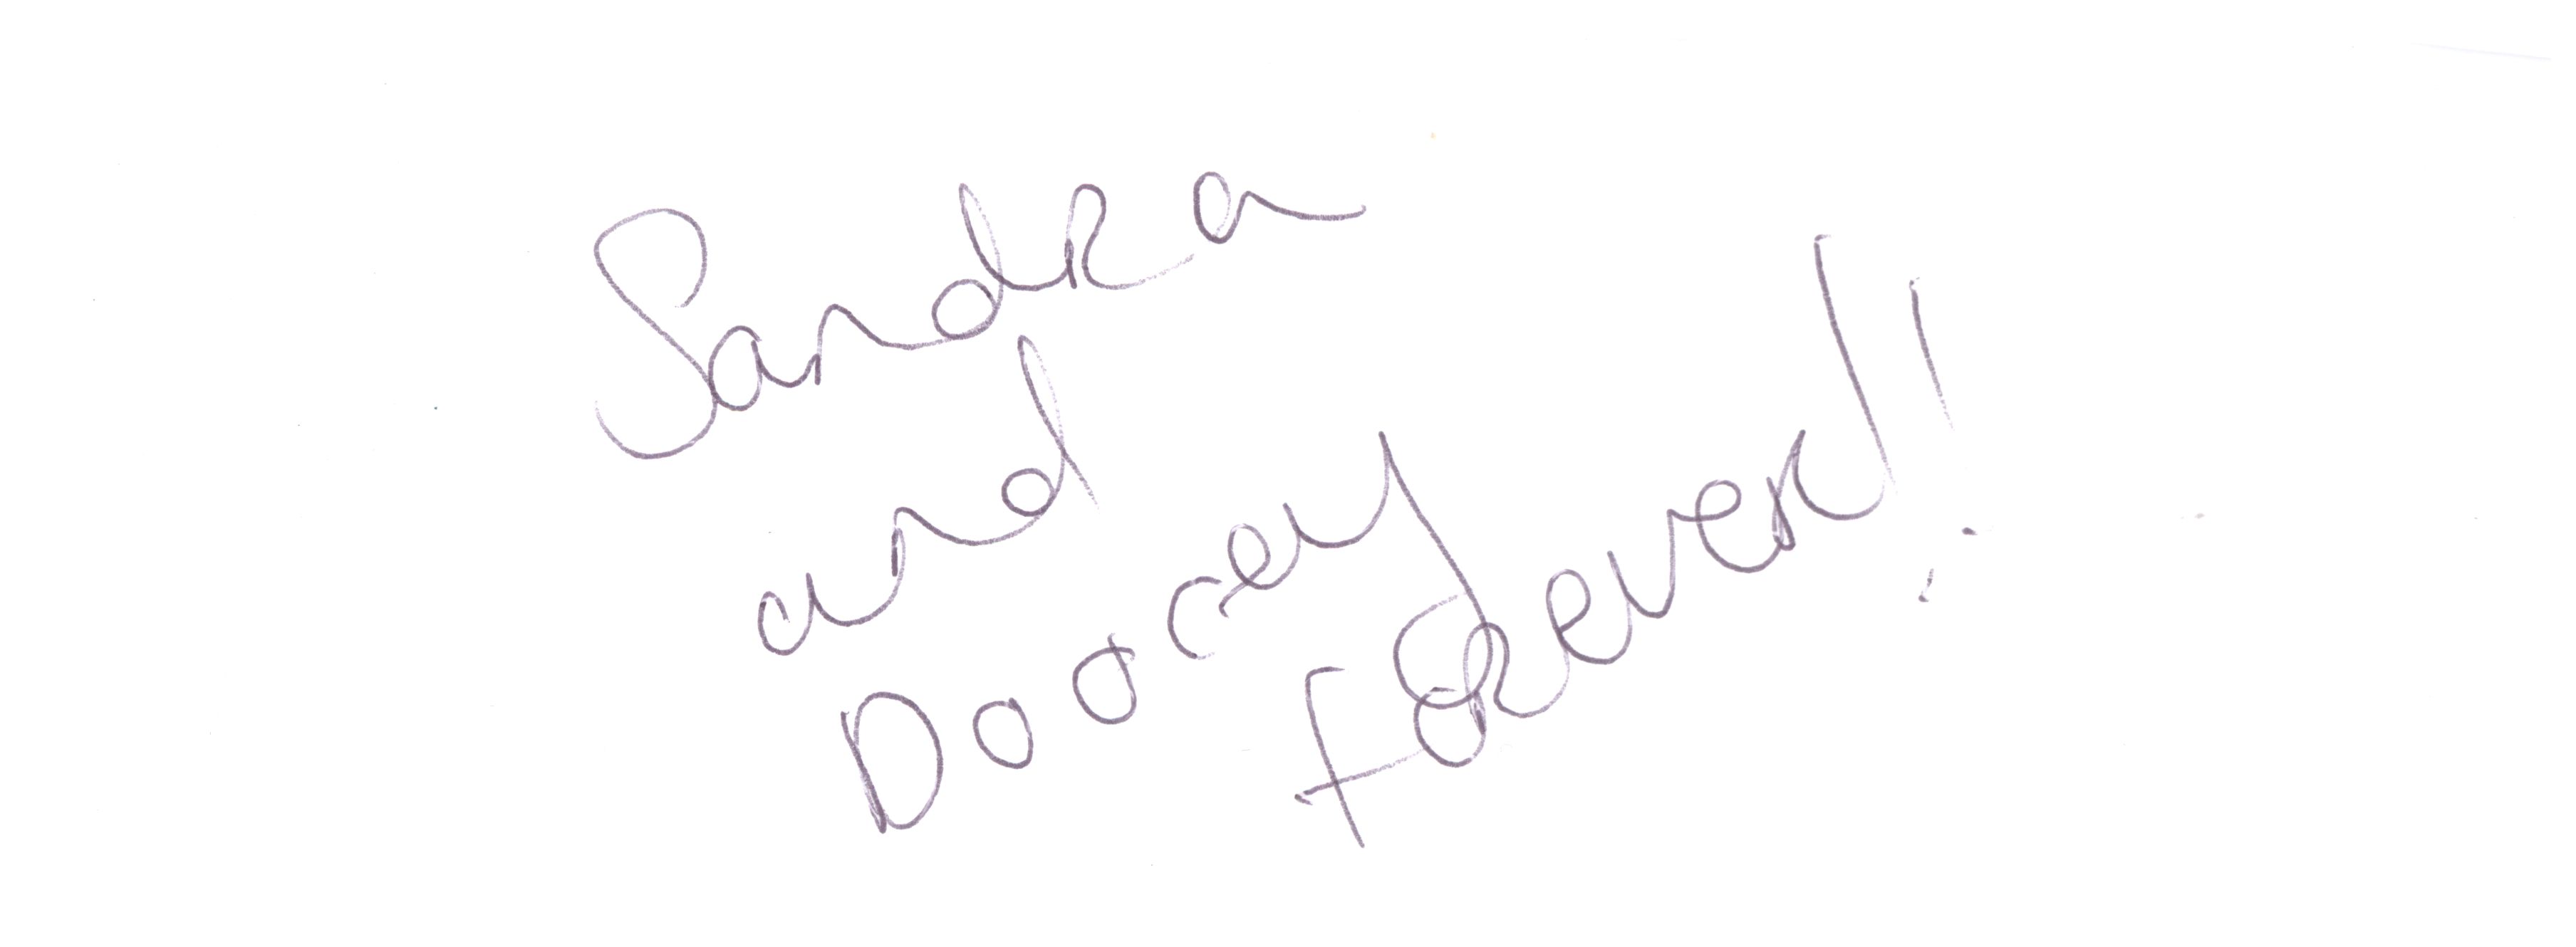 Sandra
and
Doocey
forever!!